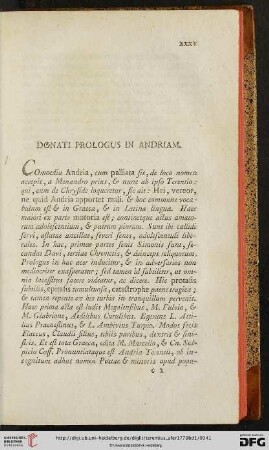 XXXV
DONATI PROLOGUS IN ANDRIAM.
Comoedia Andria, cum palliata sit, de loco nomen
accepit, a Menandro prius, & nunc ab ipso Terentio:
qui, cum de Chryside loqueretur, sic ait: Hei, vereor,
ne quid Andria apportet mali. & hoc commune voca-
bulum est & in Graeca, & in Latina lingua. Haec
maiori ex parte motoria est; continetque actus amato-
rum adolescentium, & patrum
servi, astutae ancillae, severi senes, adolescentuli libe-
rales. In hac, primae partes sunt Simonis senis, se-
cundae Davi, tertiae Chremetis, & deinceps reliquorum.
Prologus in hac acer inducitur, & in adversarios non
mediocriter exasperatur; sed tamen id subtiliter, ut om-
nia lacessitus facere videatur, ac dicere. Hic protasis
subtilis, epitasis tumultuosa, catastrophe paene tragica;
& tamen repente ex his turbis in tranquillum pervenit.
Haec prima acta est ludis Megalensibus, M. Fulvio, &
M. Glabrione, Aedilibus Curulibus. Egerunt L. Atti-
lius Praenestinus, & L. Ambivius Turpio. Modos fecit
Flaccus, Claudii filius, tibiis paribus, dextris & sini-
stris. Et est tota Graeca, edita M. Marcello, & Cn. Sul-
picio Coss. Pronuntiataque est Andria Terentii, ob in-
cognitum adhuc nomen Poetae & minoris apud popu-
c 2
http://digi.ub.uni-heidelberg.de/diglit/terentius_afer1779bd1/0041
Universitätsbibliothek Heidelberg
Gefördert durch die
DFG